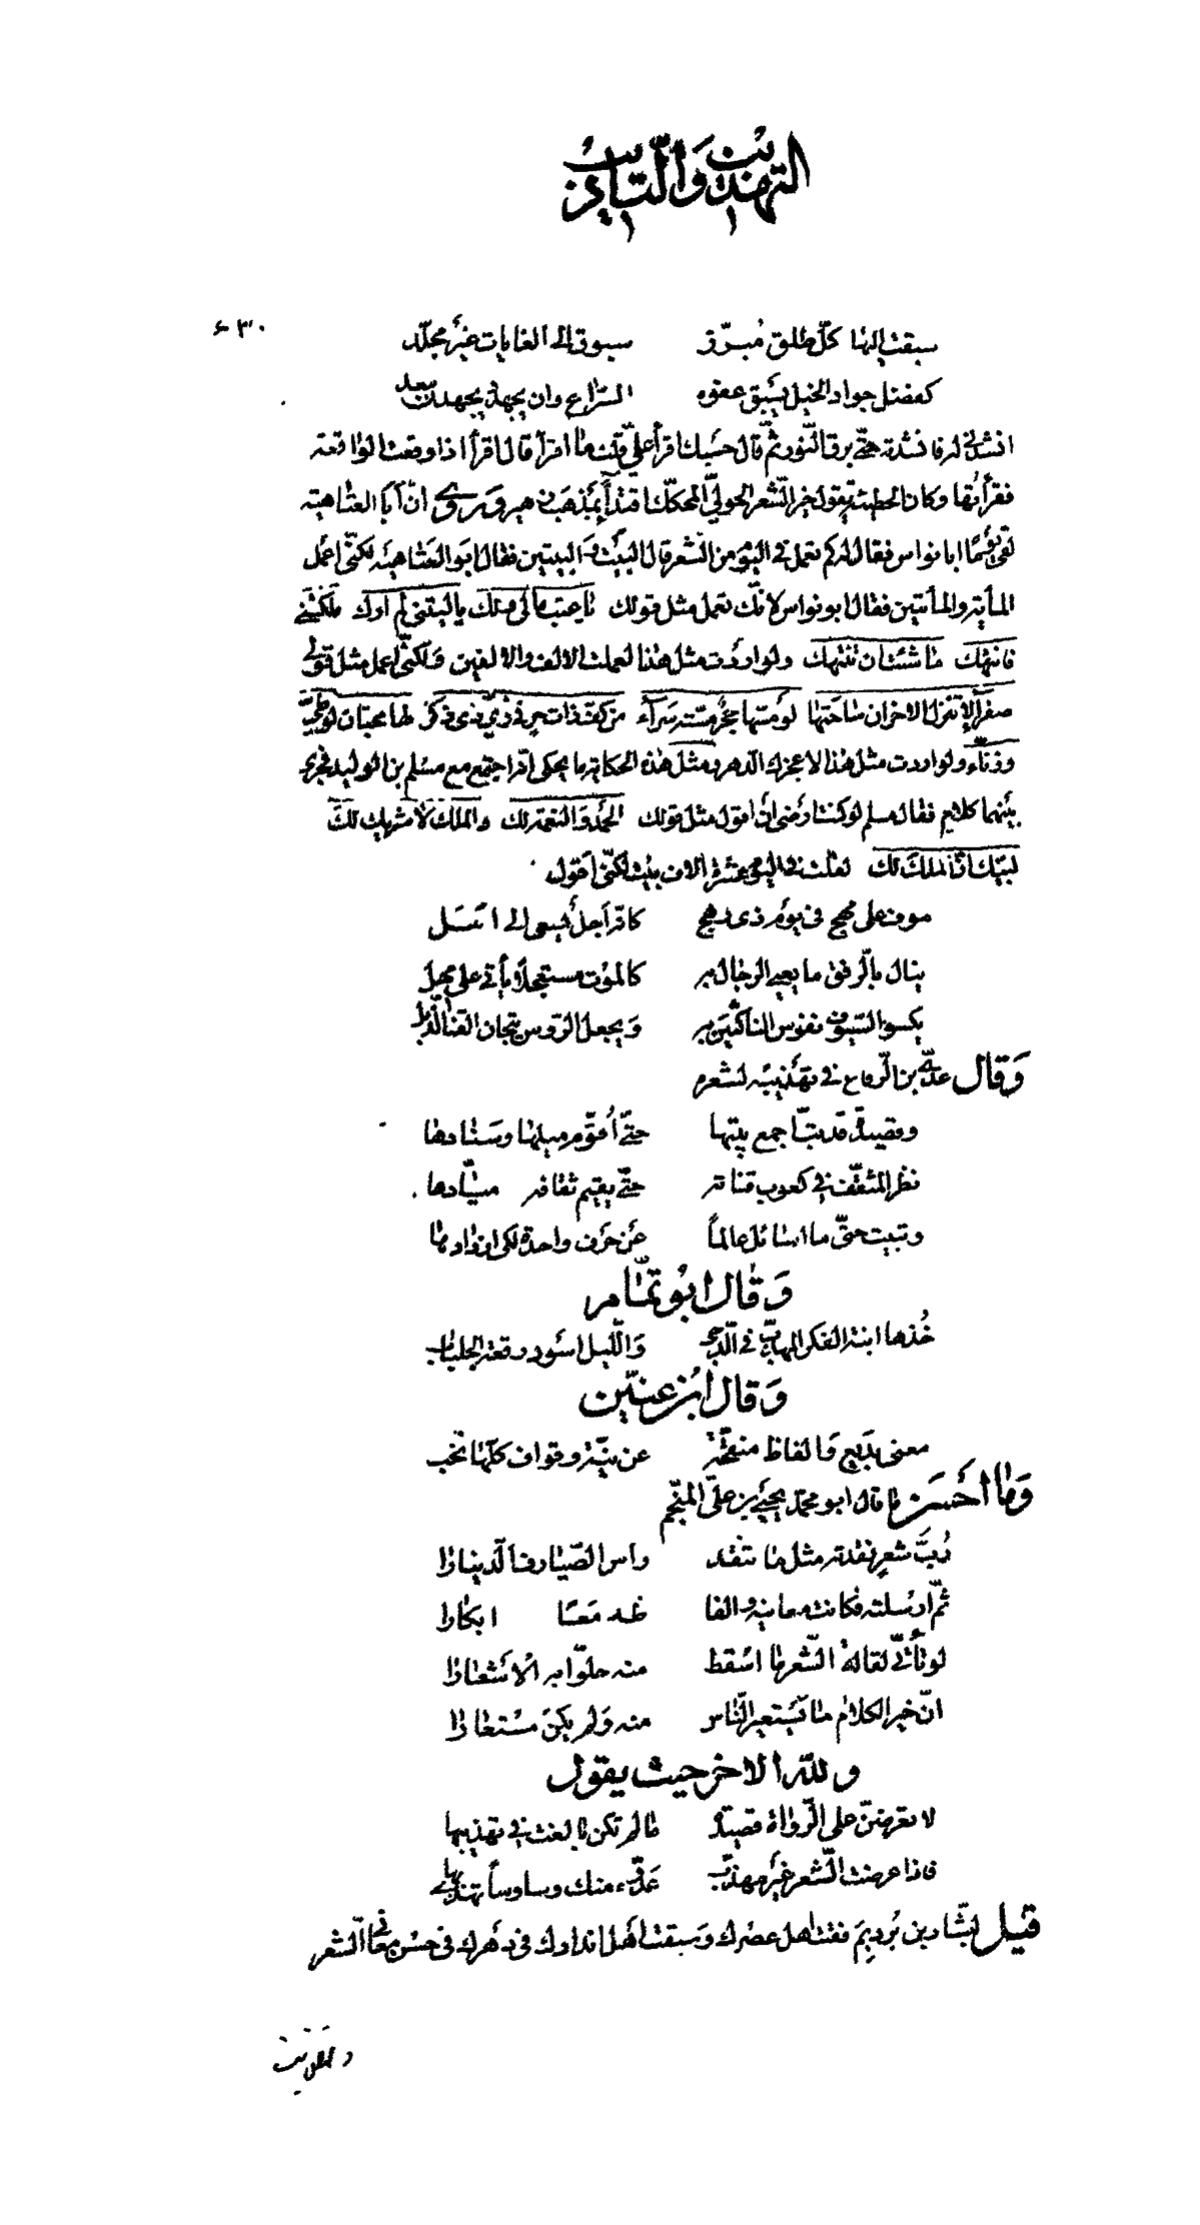 التهذيب والتاديب
٦٣٠
سبقت إليها كلّ طلق مُبرّز سبوق إلى الغايات غير مجلّد
كفضل جواد الخيل يسبق عفوه السّراع وان يجهد ويجهدن يبعد
انشدني له فانشدته حتّى برق النّور ثمّ قال حسبك اقرأ عليّ قلت ما اقرأ قال اقرأ اذا وقعت الواقعة
فقرأتها وكان الحطيئة يقول خير الشّعر الحوليّ المحكّك اقتدأ بمذهب زهير ويروى انّ أبا العتاهية
لقي يومًا ابا نواس فقال له كم تعمل في اليوم من الشّعر قال البيت والبيتين فقال ابو العتاهية لكنّي اعمل
المأية والمأتين فقال ابو نواس لانّك تعمل مثل قولك يا عتب ما لي ولك يا ليتني لم ارك ملكتني
فانتهك ما شئت ان تنتهك ولو اردت مثل هذا لعملت الالف والالفين ولكنّي اعمل مثل قولي
صفرآء لا تنزل الاحزان ساحتها لو مسّها حجر مسّته سرّآء من كفّ ذات حر في زيّ ذي ذكر لها محبّان لوطيّ
وزنّاء ولو اردت مثل هذا لاعجزك الدهر ومثل هذه الحكاية ما يحكى انّه اجتمع مع مسلم بن الوليد فجرى
بينهما كلام فقال مسلم لو كنت ارضى أن اقول مثل قولك الحمد والنعمة لك والملك لا شريك لك
لبيك انّ الملك لك لقلت في اليوم عشرة الاف بيت لكنّي اقول
موف على مهج في يوم ذي رهج كانّه أجل يسعى الى امل
ينال بالّرفق ما يعيى الرجال به كالموت مستعجلا يأتي على مهل
يكسو السّيوف نفوس الناكثين به ويجعل الرّوس تيجان القنا الذّبل
وقال عديّ بن الّرقاع في تهذيبه لشعره
وقصيدة قد بتّ اجمع بيتها حتّى أقوّم ميلها وسنادها
نظر المثقّف في كعوب قناته حتّى يقيم ثقافه ميّادها
وتبيت حتّى ما اسائل عالماً عن حرف واحدة لكى ازدادها
وقال ابو تمّام
خُذها ابنة الفكر المهذّب في الّدجى والّليل اسود رقعة الجلباب
وقال ابن عنين
معنى بديع والفاظ منقّحة عن نيّة وقواف كلّها نخب
وما أحسن ما قال ابو محمّد يحيى بن عليّ المنجّم
رُبّ شعر نقدته مثل ما ينقد راس الصّيارف الّدينارا
ثمّ ارسلته فكانت معانيه والفا ظه معًا ابكارا
لو تأتّى لقالة الشّعر ما اسقط منه حلّوا به الاشعارا
انّ خير الكلام ما يستعير النّاس منه ولم يكن مستعارا
ولله الاخر حيث يقول
لا تعرضنّ على الّرواة قصيدة ما لم تكن بالغت في تهذيبها
فاذا عرضت الّشعر غير مهذّب عدّوه منك وساوساً تهذي بها
قيل لبشّار بن بُرد بِمَ فقت اهل عصرك وسبقت أهل اندادك في دهرك في حسن معاني الّشعر